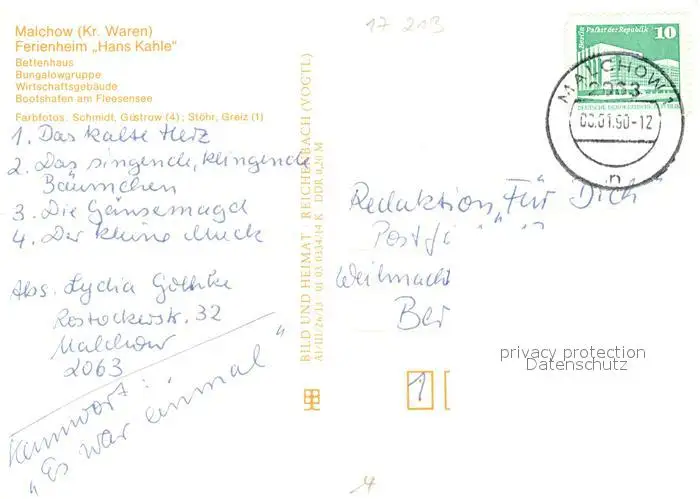 Malchow (Kr. Waren)
Ferienheim „Hans Kahle"
Bettenhaus
Bungalowgruppe
Wirtschaftsgebäude
Bootshafen am Fleesensee
Farbfotos: Schmidt, Güstrow (4); Stöhr, Greiz (1)
1. Das kalte Herz
2. Das singende, klingende
Bäumchen
3. Die Gänsemagd
4. Der kleine Muck
Abs. Lydia Göthke
Rostockerstr. 32
Malchow
2063
Kennwort:
„Es war einmal"
BILD UND HEIMAT REICHENBACH (VOGTL)
A1/III/26/13 01 03 0334/14 K DDR 0,20 M
17 203
Berlin Palast der Republik
10
MALCHOW 1
2063
-12
n
Redaktion „Für Dich"
Postf
Weihnacht
Ber
1
privacy protection
Datenschutz